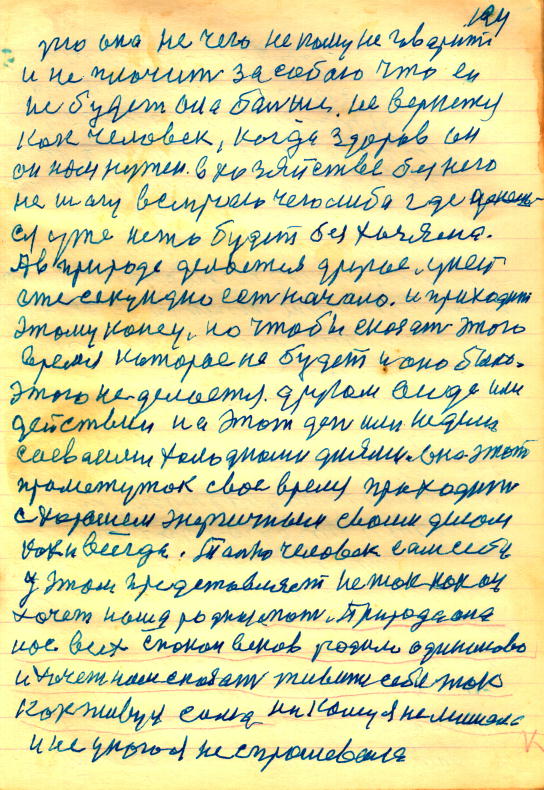 194
что она не чего не кому не гаварит
и не плочит за собою что ей
не будет она больши. не вернется
как человек, когда здоров он
он нам нужен. в хозяйстве без него
не шагу встречаю чего либа где
ся уже нету будит без хазяена.
А в природе делается другое,
сте секундно ест начало. и приходит
этому конец, но чтобы сказат этого
время каторае не будет и оно было.
этого не делается. другом виде или
действии на этот ден или недели
своваими холодными днями. она этот
прамежуток свое время приходит
с харошем энергичным своим делом
как и всегда. Только человек сам себя
у этом представляет не так как он
хочет наша роднаямат. Природа она
нас всех споком веков родила одинаково
и хочет нам сказат живите себе так
как живу я сама ни кому я не мишала
и не у кого я не спрашевала